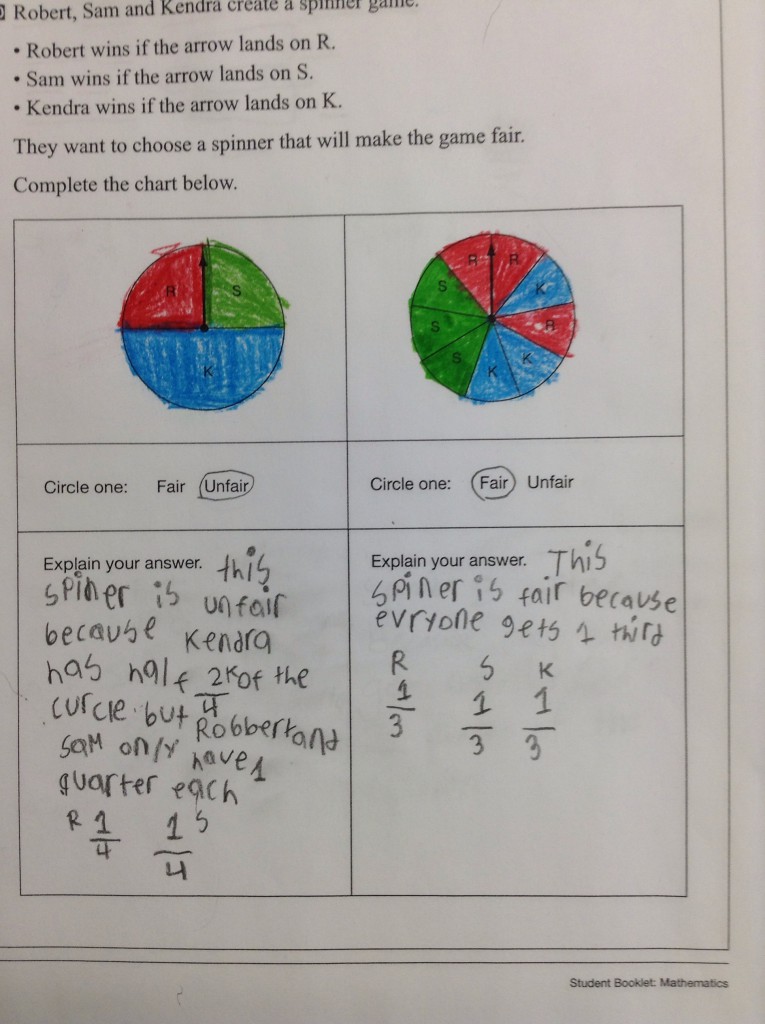 Robert, Sam and Kendra create a spinner game.
• Robert wins if the arrow lands on R.
• Sam wins if the arrow lands on S.
• Kendra wins if the arrow lands on K.
They want to choose a spinner that will make the game fair.
Complete the chart below.
R S
K
R R
S K
S R
S K K
Circle one: Fair Unfair
Circle one: Fair Unfair
Explain your answer. this
spiner is unfair
because Kendra
has half 2/4 K of the
curcle but Robbert and
sam only have 1
quarter each
R 1/4 1/4 S
Explain your answer. This
spiner is fair because
evryone gets 1 third
R S K
1/3 1/3 1/3
Student Booklet: Mathematics